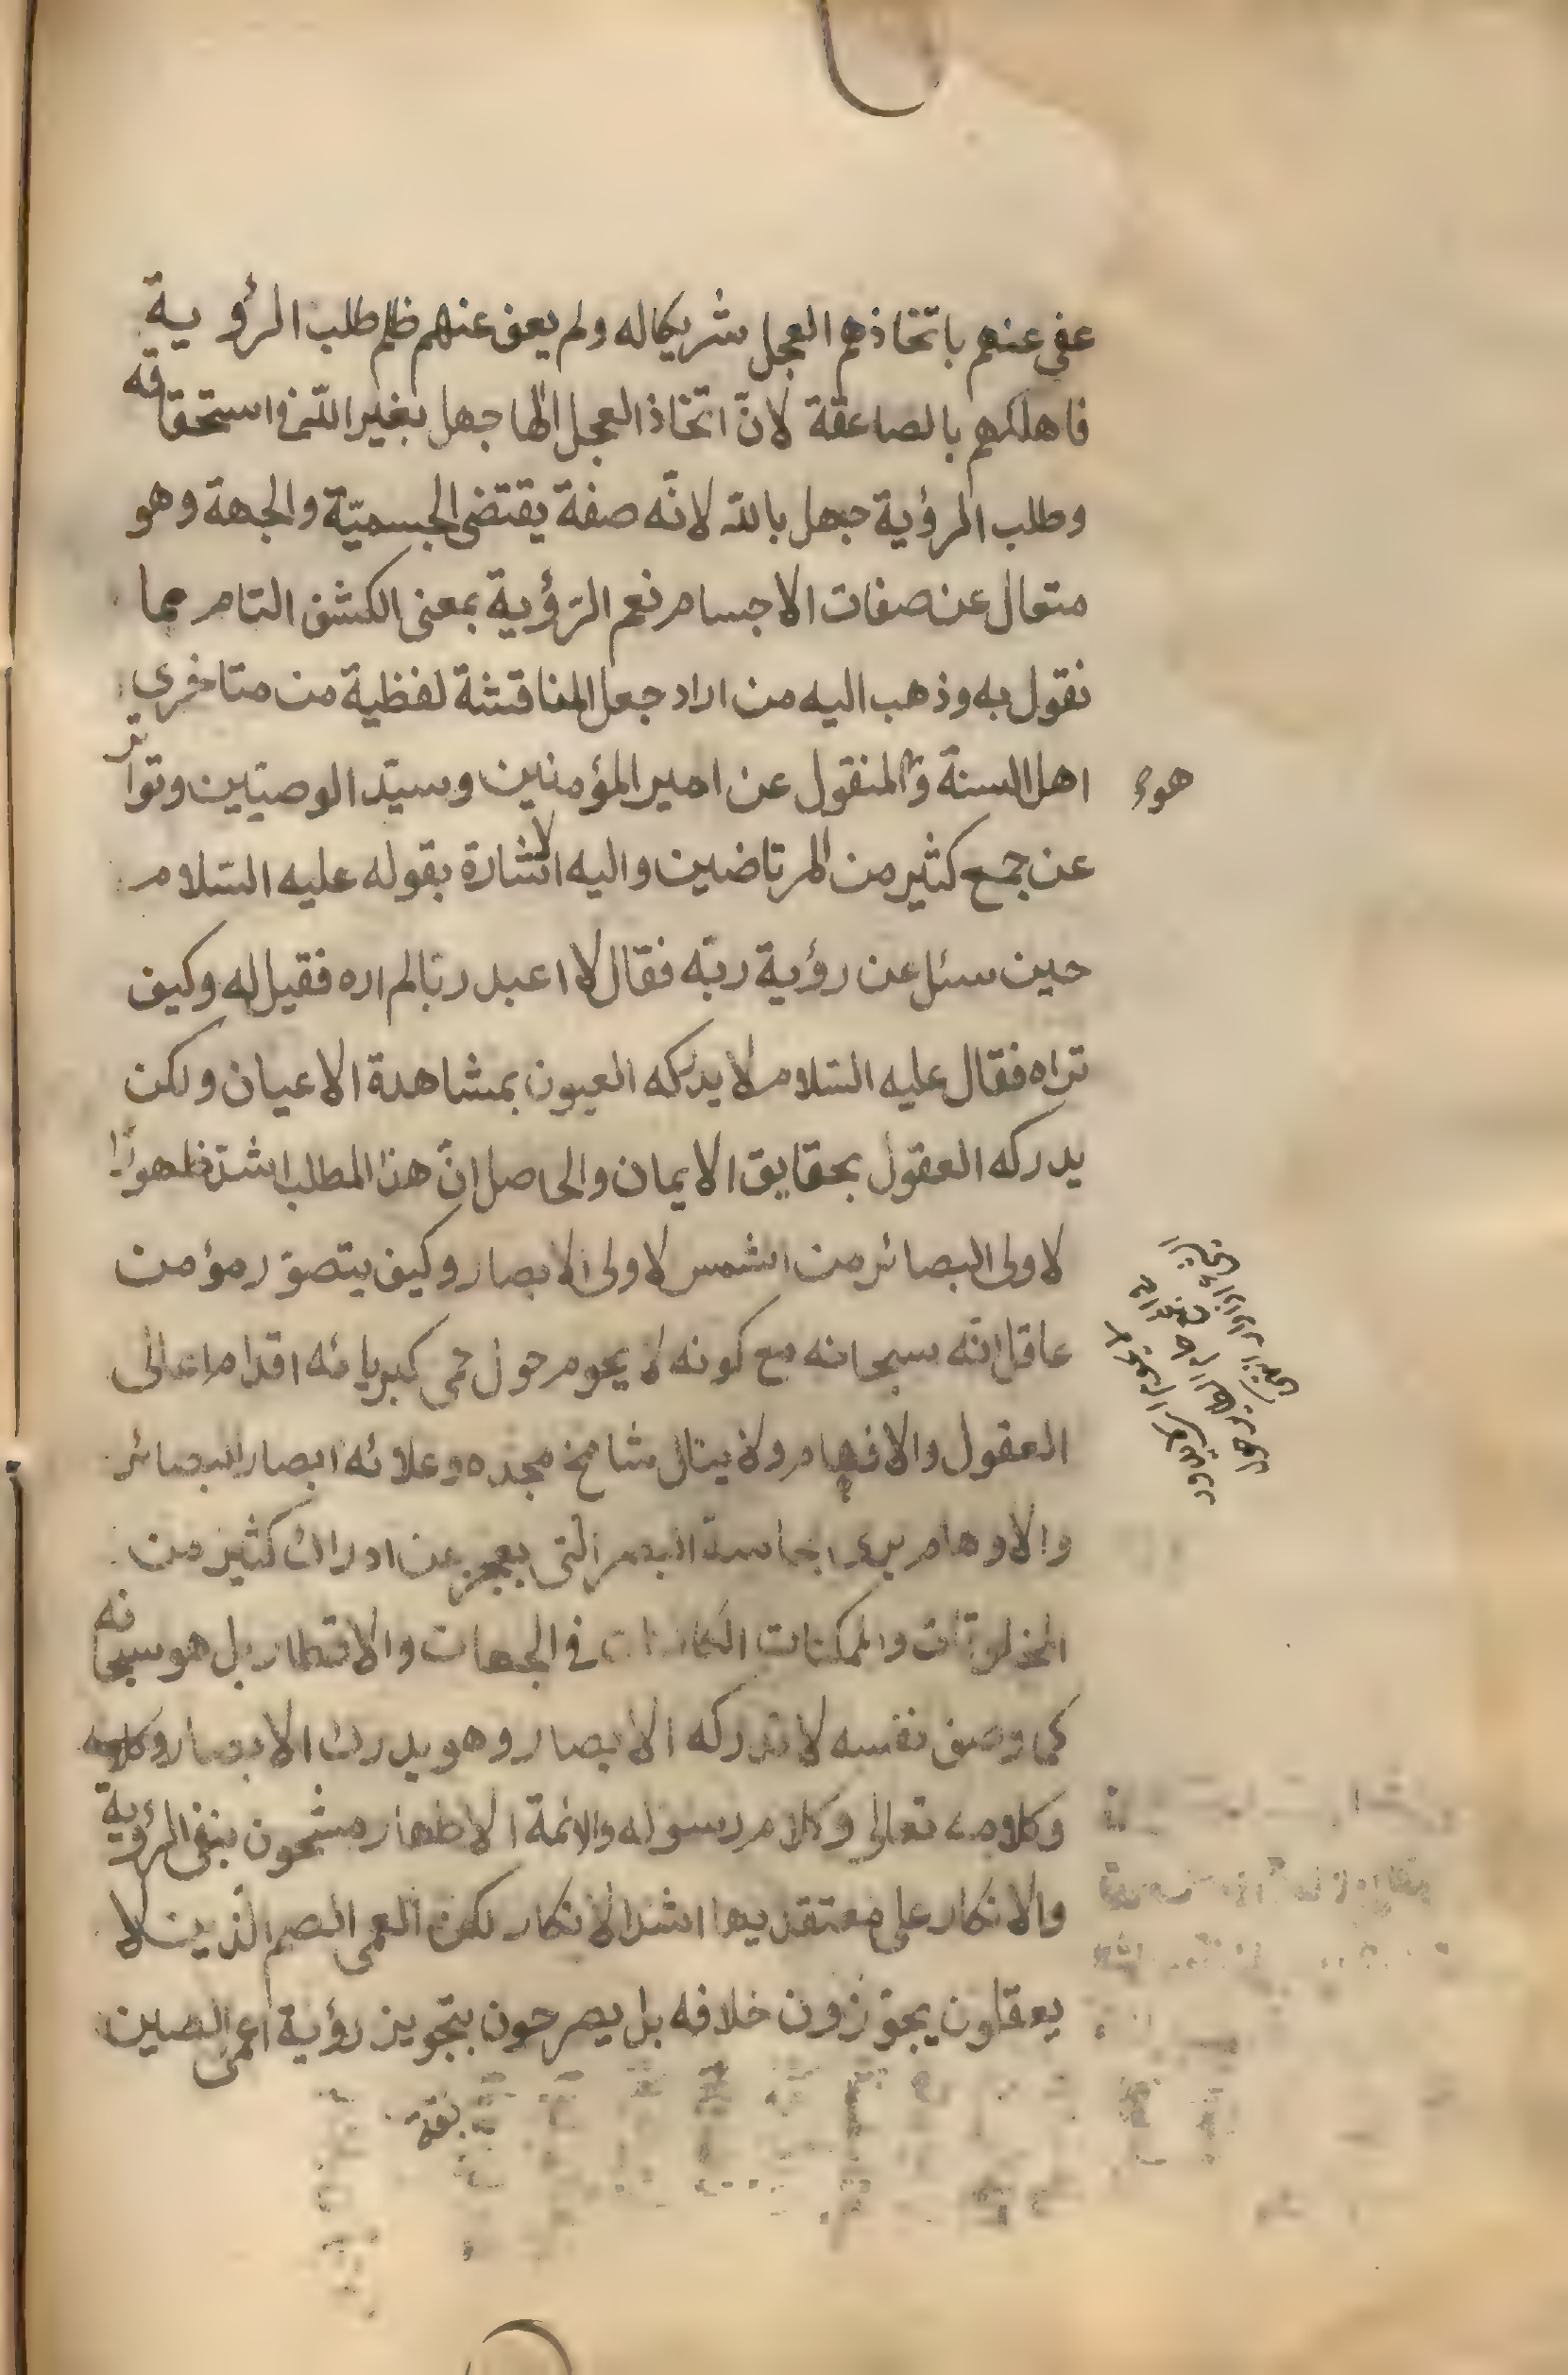 عفى عنهم باتخاذهم العجل شريكا له ولم يعف عنهم ظلم طلب الرؤية
فاهلكهم بالصاعقة لانّ اتخاذ العجل الها جهل بغير الله في استحقاقه
وطلب الرؤية جهل بالله لانّه صفة يقتضى الجسميّة والجهة وهو
متعال عن صفات الاجسام نعم الرّؤية بمعنى الكشف التام مما
نقول به وذهب اليه من اراد جعل المناقشة لفظية من متاخرى
اهل السنة وهو المنقول عن امير المؤمنين وسيّد الوصيّين وتواتر
عن جمع كثير من المرتاضين واليه الاشارة بقوله عليه السّلام
حين سئل عن رؤية ربّه فقال لا اعبد ربّا لم اره فقيل له وكيف
تراه فقال عليه السّلام لا يدركه العيون بمشاهدة الاعيان ولكن
يدركه العقول بحقايق الايمان والحاصل انّ هذا المطلب اشدّ ظهورًا
لاولى البصائر من الشمس لاولى الابصار وكيف يتصوّر مؤمن
عاقل انّه سبحانه مع كونه لا يحوم حول حمى كبريائه اقدام اعالى
العقول والافهام ولا ينال شامخ مجده وعلائه ابصار البصائر
والاوهام يرى بحاسة البصر التى يعجز عن ادراك كثير من
المخلوقات والممكنات فى الجهات والاقطار بل هو سبحانه
كما وصف نفسه لا تدركه الابصار وهو يدرك الابصار
وكلامه تعالى وكلام رسوله والائمة الاطهار مشحون بنفى الرؤية
والانكار على معتقديها اشد الانكار لكن العمى الصم الّذين لا
يعقلون يجوّزون خلافه بل يصرحون بتجويز رؤية اعمى الصين
بقة